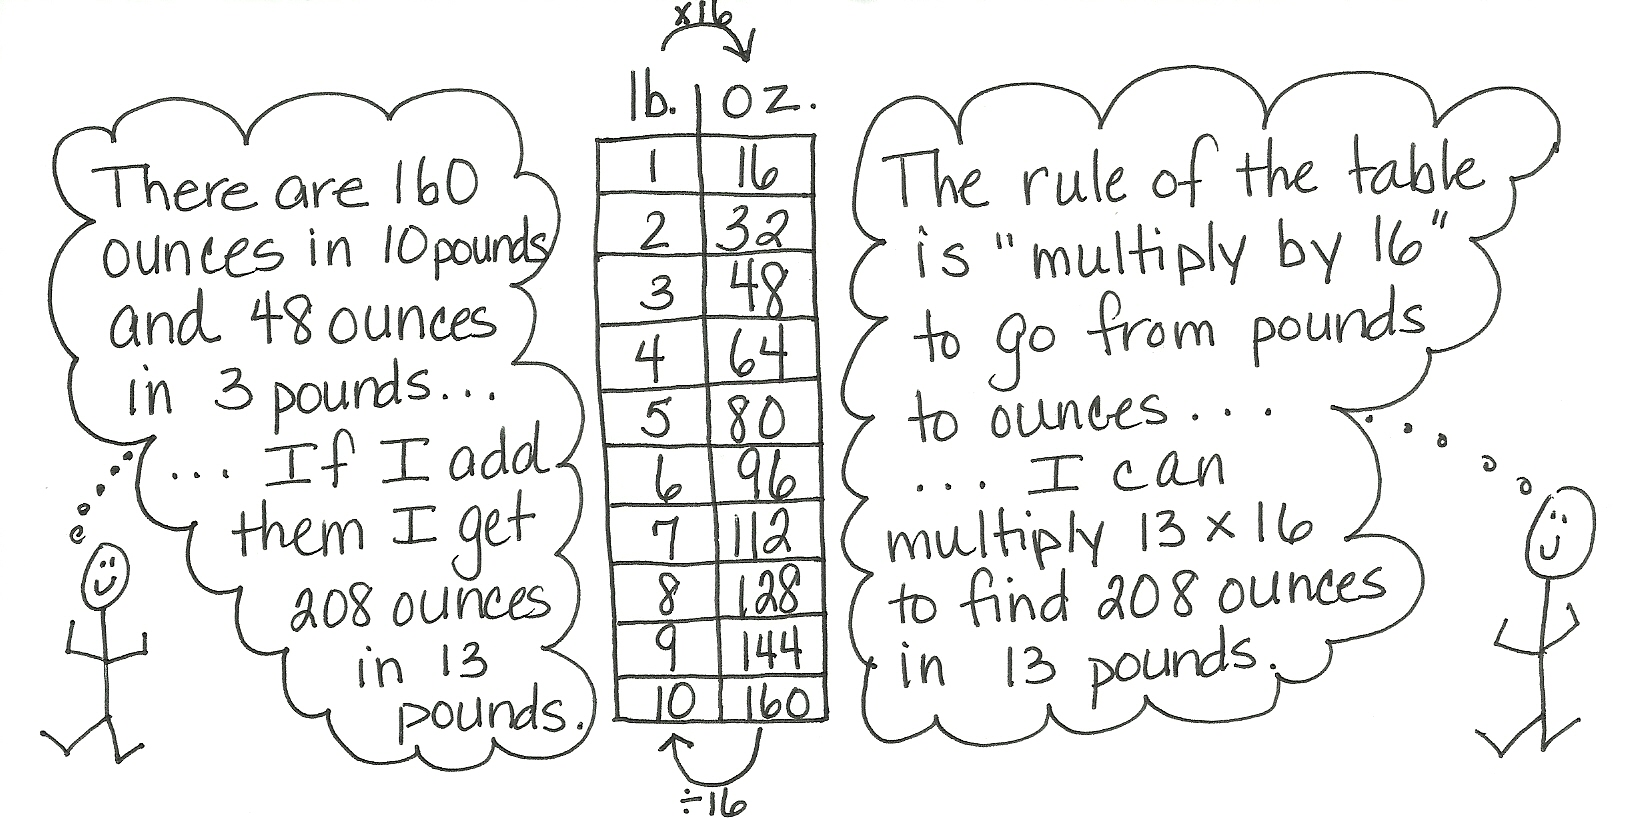 ×16
lb. oz.
There are 160
ounces in 10 pounds
and 48 ounces
in 3 pounds...
... If I add
them I get
208 ounces
in 13
pounds.
1 16
2 32
3 48
4 64
5 80
6 96
7 112
8 128
9 144
10 160
÷16
The rule of the table
is "multiply by 16"
to go from pounds
to ounces....
... I can
multiply 13 x 16
to find 208 ounces
in 13 pounds.